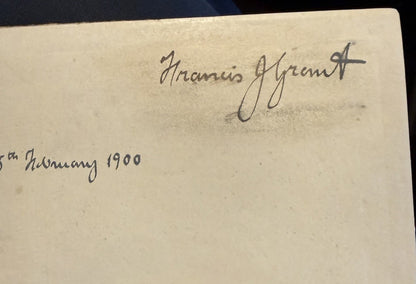 Francis J Grant
5th February 1900